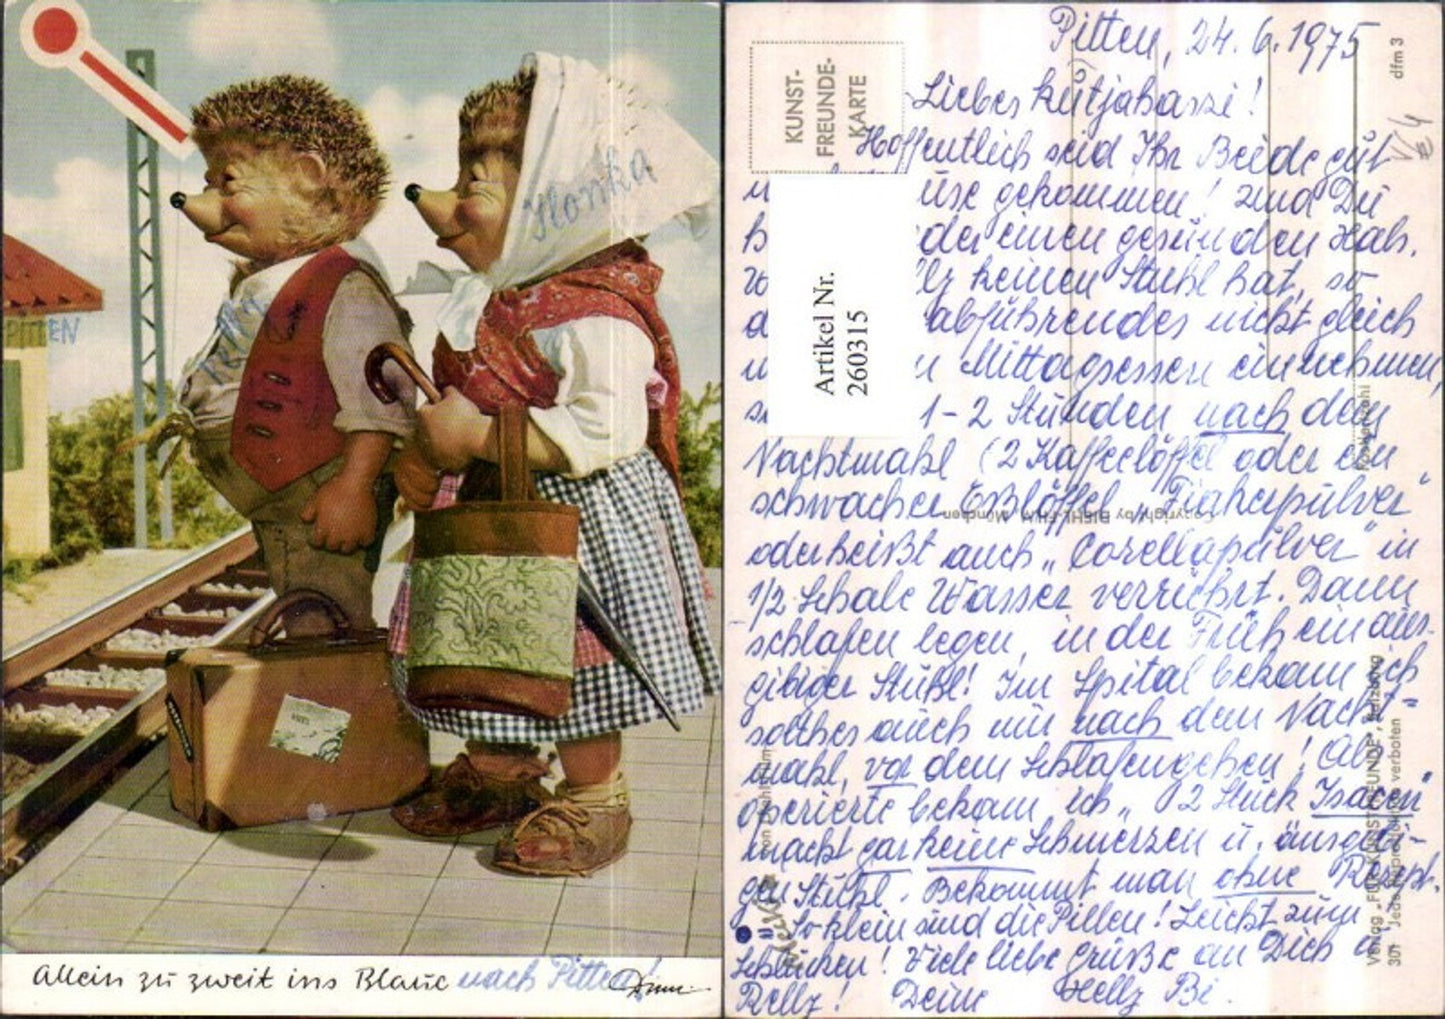 PITTEN
Ilonka
Allein zu zweit ins Blaue nach Pitten!
Pitten, 24.6.1975
KUNST-
FREUNDE-
KARTE
dfm 3
Artikel Nr.
260315
Hoffentlich seid Ihr Beide gut
gekommen! und Du
einen gesunden Hals.
keinen Stuhl hat, so
abführendes nicht gleich
Mittagessen einnehmen,
1-2 Stunden nach dem
Nachtmahl (2 Kaffeelöffel oder ein
schwacher Esslöffel „Figherpulver"
oder heißt auch „Corellapulver" in
1/2 Schale Wasser verrührt. Dann
schlafen legen, in der Früh ein aus-
gibiger Stuhl! Im Spital bekam ich
solches auch nur nach dem Nacht-
mahl, vor dem Schlafengehen! Als
operierte bekam ich „ 2 Stück Isacen"
macht gar keine Schmerzen u. ausgibi-
gen Stuhl. Bekommt man ohne Rezept.
So klein sind die Pillen! Leicht zum
Schlucken! Viele liebe Grüße an Dich u
Deine
Copyright by DIEHL-FILM, München
Verlag „FÜR KUNSTFREUNDE", Salzburg
301 Jede Reproduktion verboten